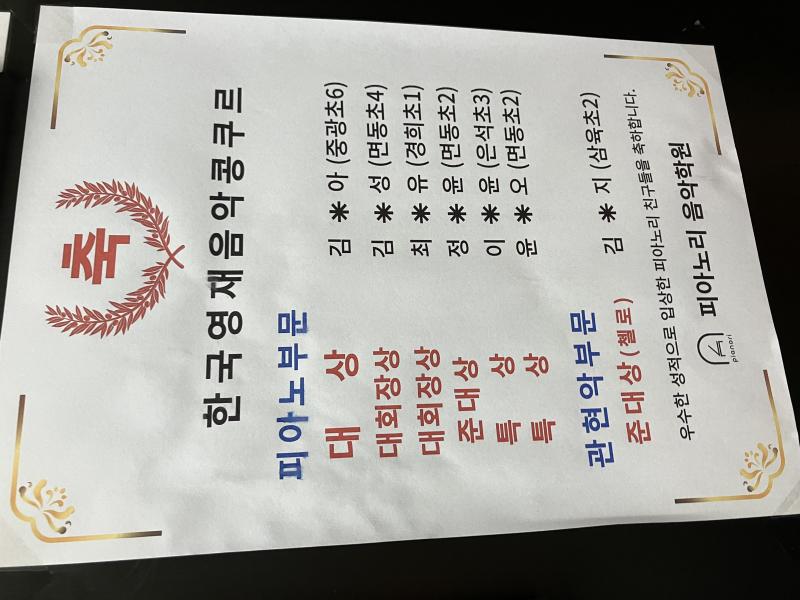 축
한국영재음악콩쿠르
피아노부문
대 상 김 * 아 (중광초6)
대회장상 김 * 성 (면동초4)
대회장상 최 * 유 (경희초1)
준대상 정 * 윤 (면동초2)
특 상 이 * 윤 (은석초3)
특 상 윤 * 오 (면동초2)
관현악부문
준대상(첼로) 김 * 지 (삼육초2)
우수한 성적으로 입상한 피아노리 친구들을 축하합니다.
pianori 피아노리 음악학원